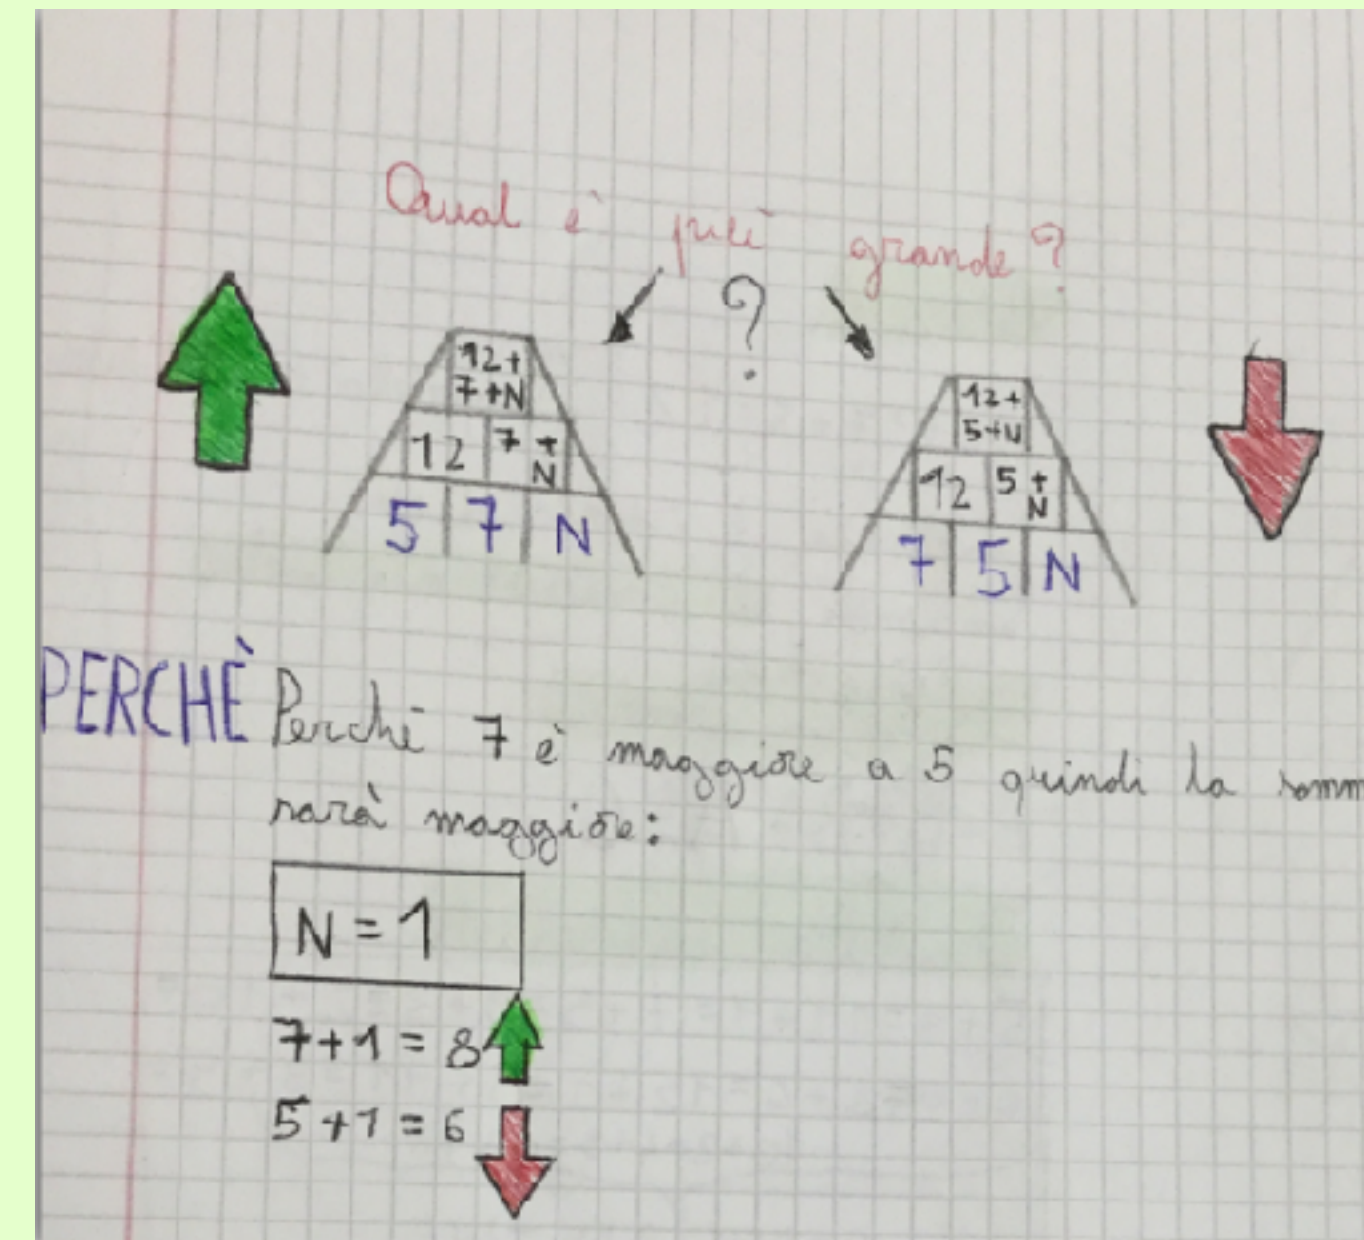 Qual è più grande?
?
12+
7+N
12 7+
N
5 7 N
12+
5+N
12 5+
N
7 5 N
PERCHÈ Perchè 7 è maggiore a 5 quindi la somm
sarà maggiore:
N = 1
7+1 = 8
5+1 = 6